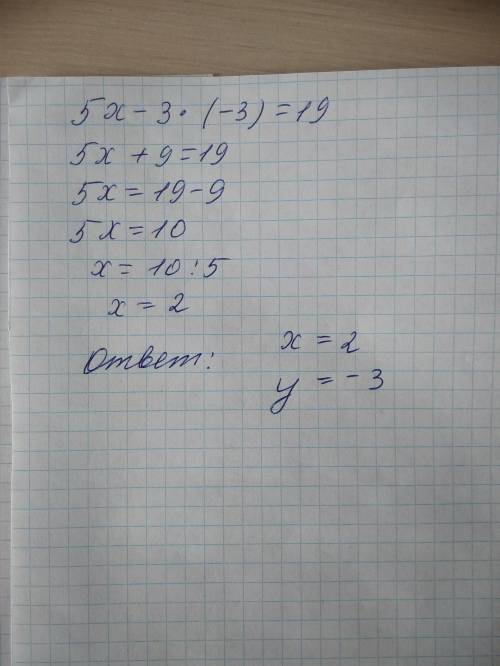 5x - 3 · (-3) = 19
5x + 9 = 19
5x = 19 - 9
5x = 10
x = 10 : 5
x = 2
Ответ: x = 2
y = -3